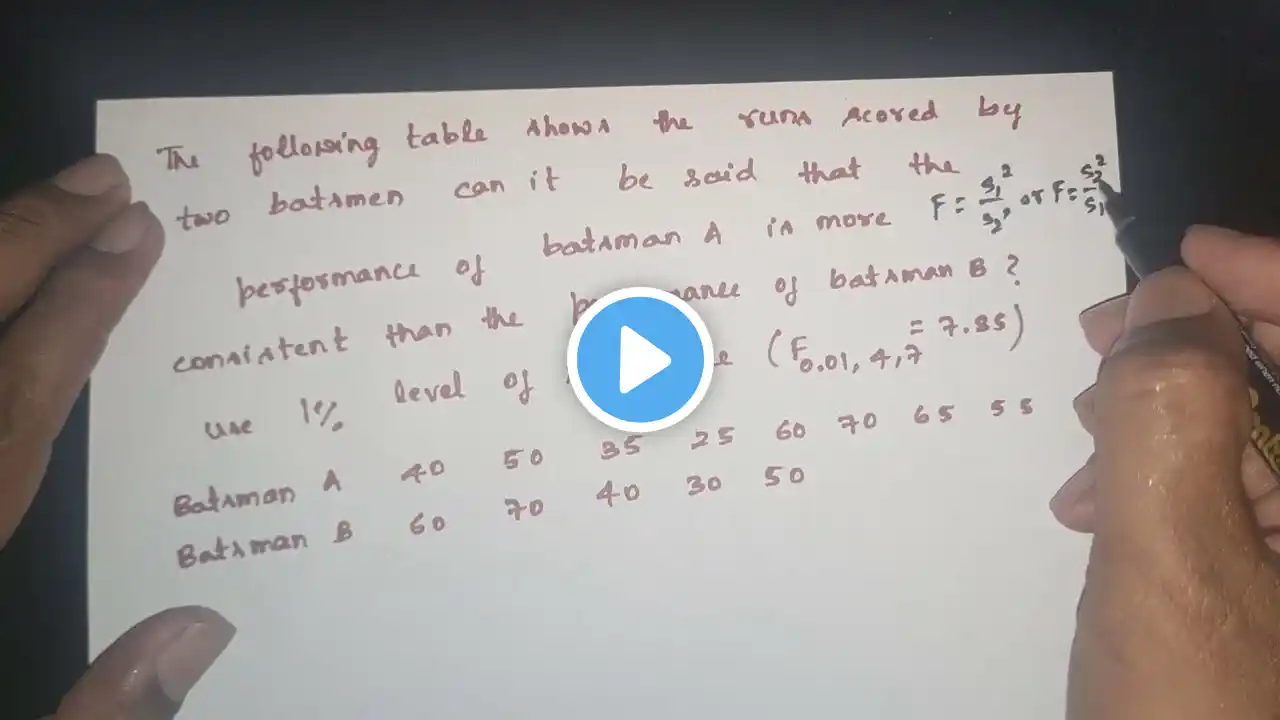 The following table shows the runs scored by
two batsmen can it be said that the
performance of batsman A is more
consistent than the of batsman B ?
use 1% level of (F0.01, 4, 7 = 7.85)
Batsman A 40 50 35 25 60 70 65 55
Batsman B 60 70 40 30 50
F = s₁²/s₂², or F = s₂²/s₁